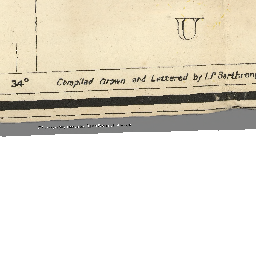 U
34°
Compiled Drawn and Lettered by I.P. Berthrong